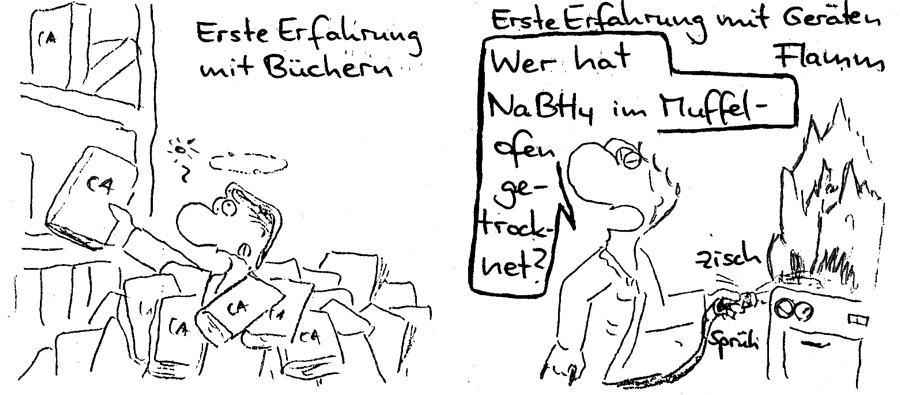 Erste Erfahrung
mit Büchern
CA
CA
CA
CA
CA
CA
?
Erste Erfahrung mit Geräten
Flamm
Wer hat
NaBH4 im Muffel-
ofen
ge-
trock-
net?
zisch
Sprüh